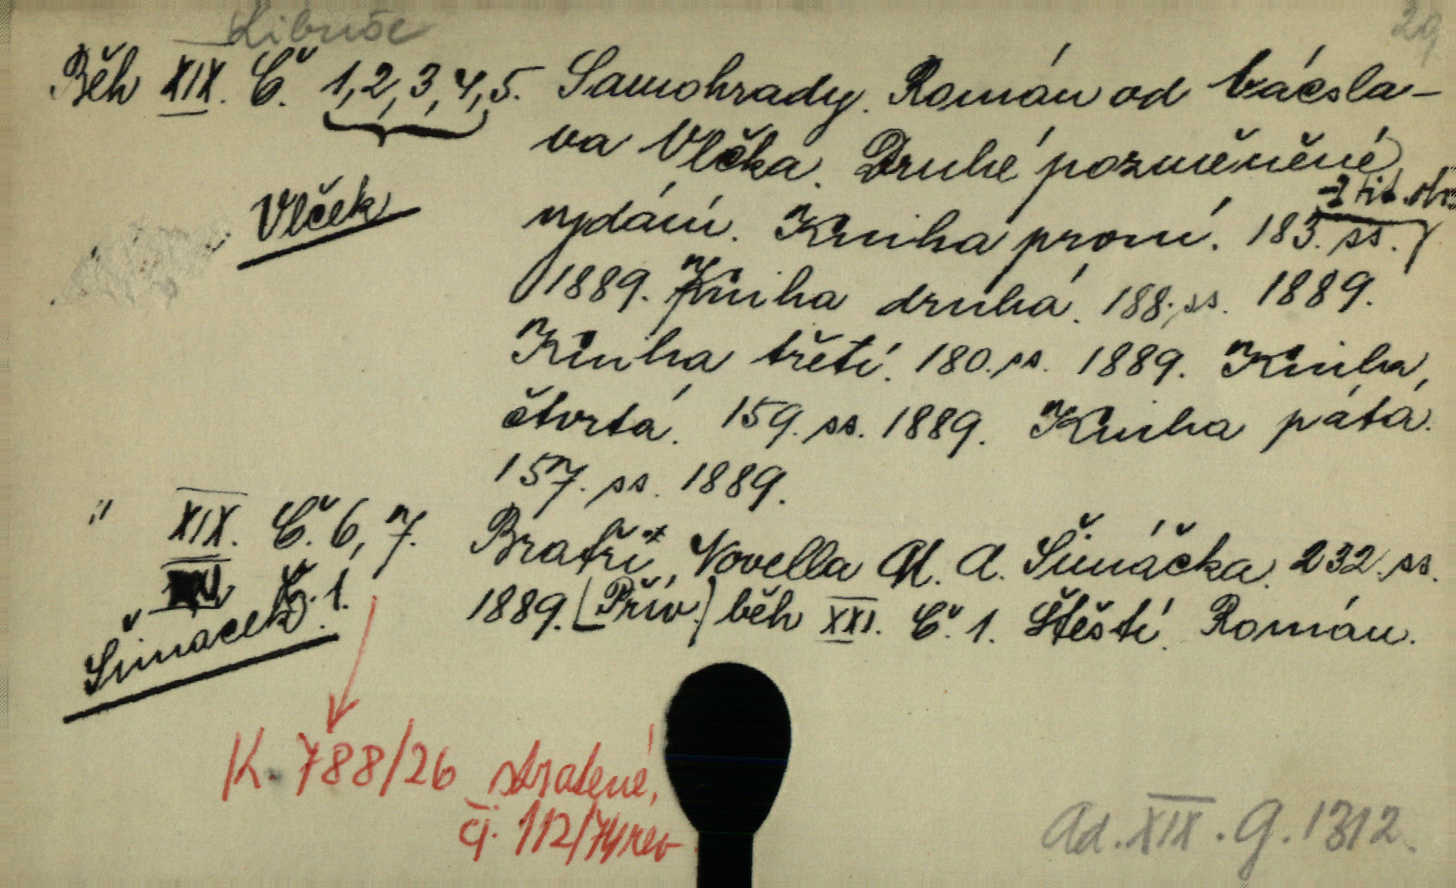 Libuše
29
Běh XIX. Č. 1, 2, 3, 4, 5. Samohrady. Román od Vácsla-
va Vlčka. Druhé pozměněné
Vlček
vydání. Kniha první. 183. ss.
1889. Kniha druhá. 188. ss. 1889.
Kniha třetí. 180. ss. 1889. Kniha
čtvrtá. 159. ss. 1889. Kniha pátá.
157. ss. 1889.
" XIX. Č. 6, 7. Bratři. Novella M. A. Šimáčka. 232. ss.
Č. 1. 1889. [Přív.] běh XXI. Č. 1. Štěstí. Román.
Šimáček
K. 788/26 stratené,
čj. 112/74 rev
Ad. XIX. G. 1312.